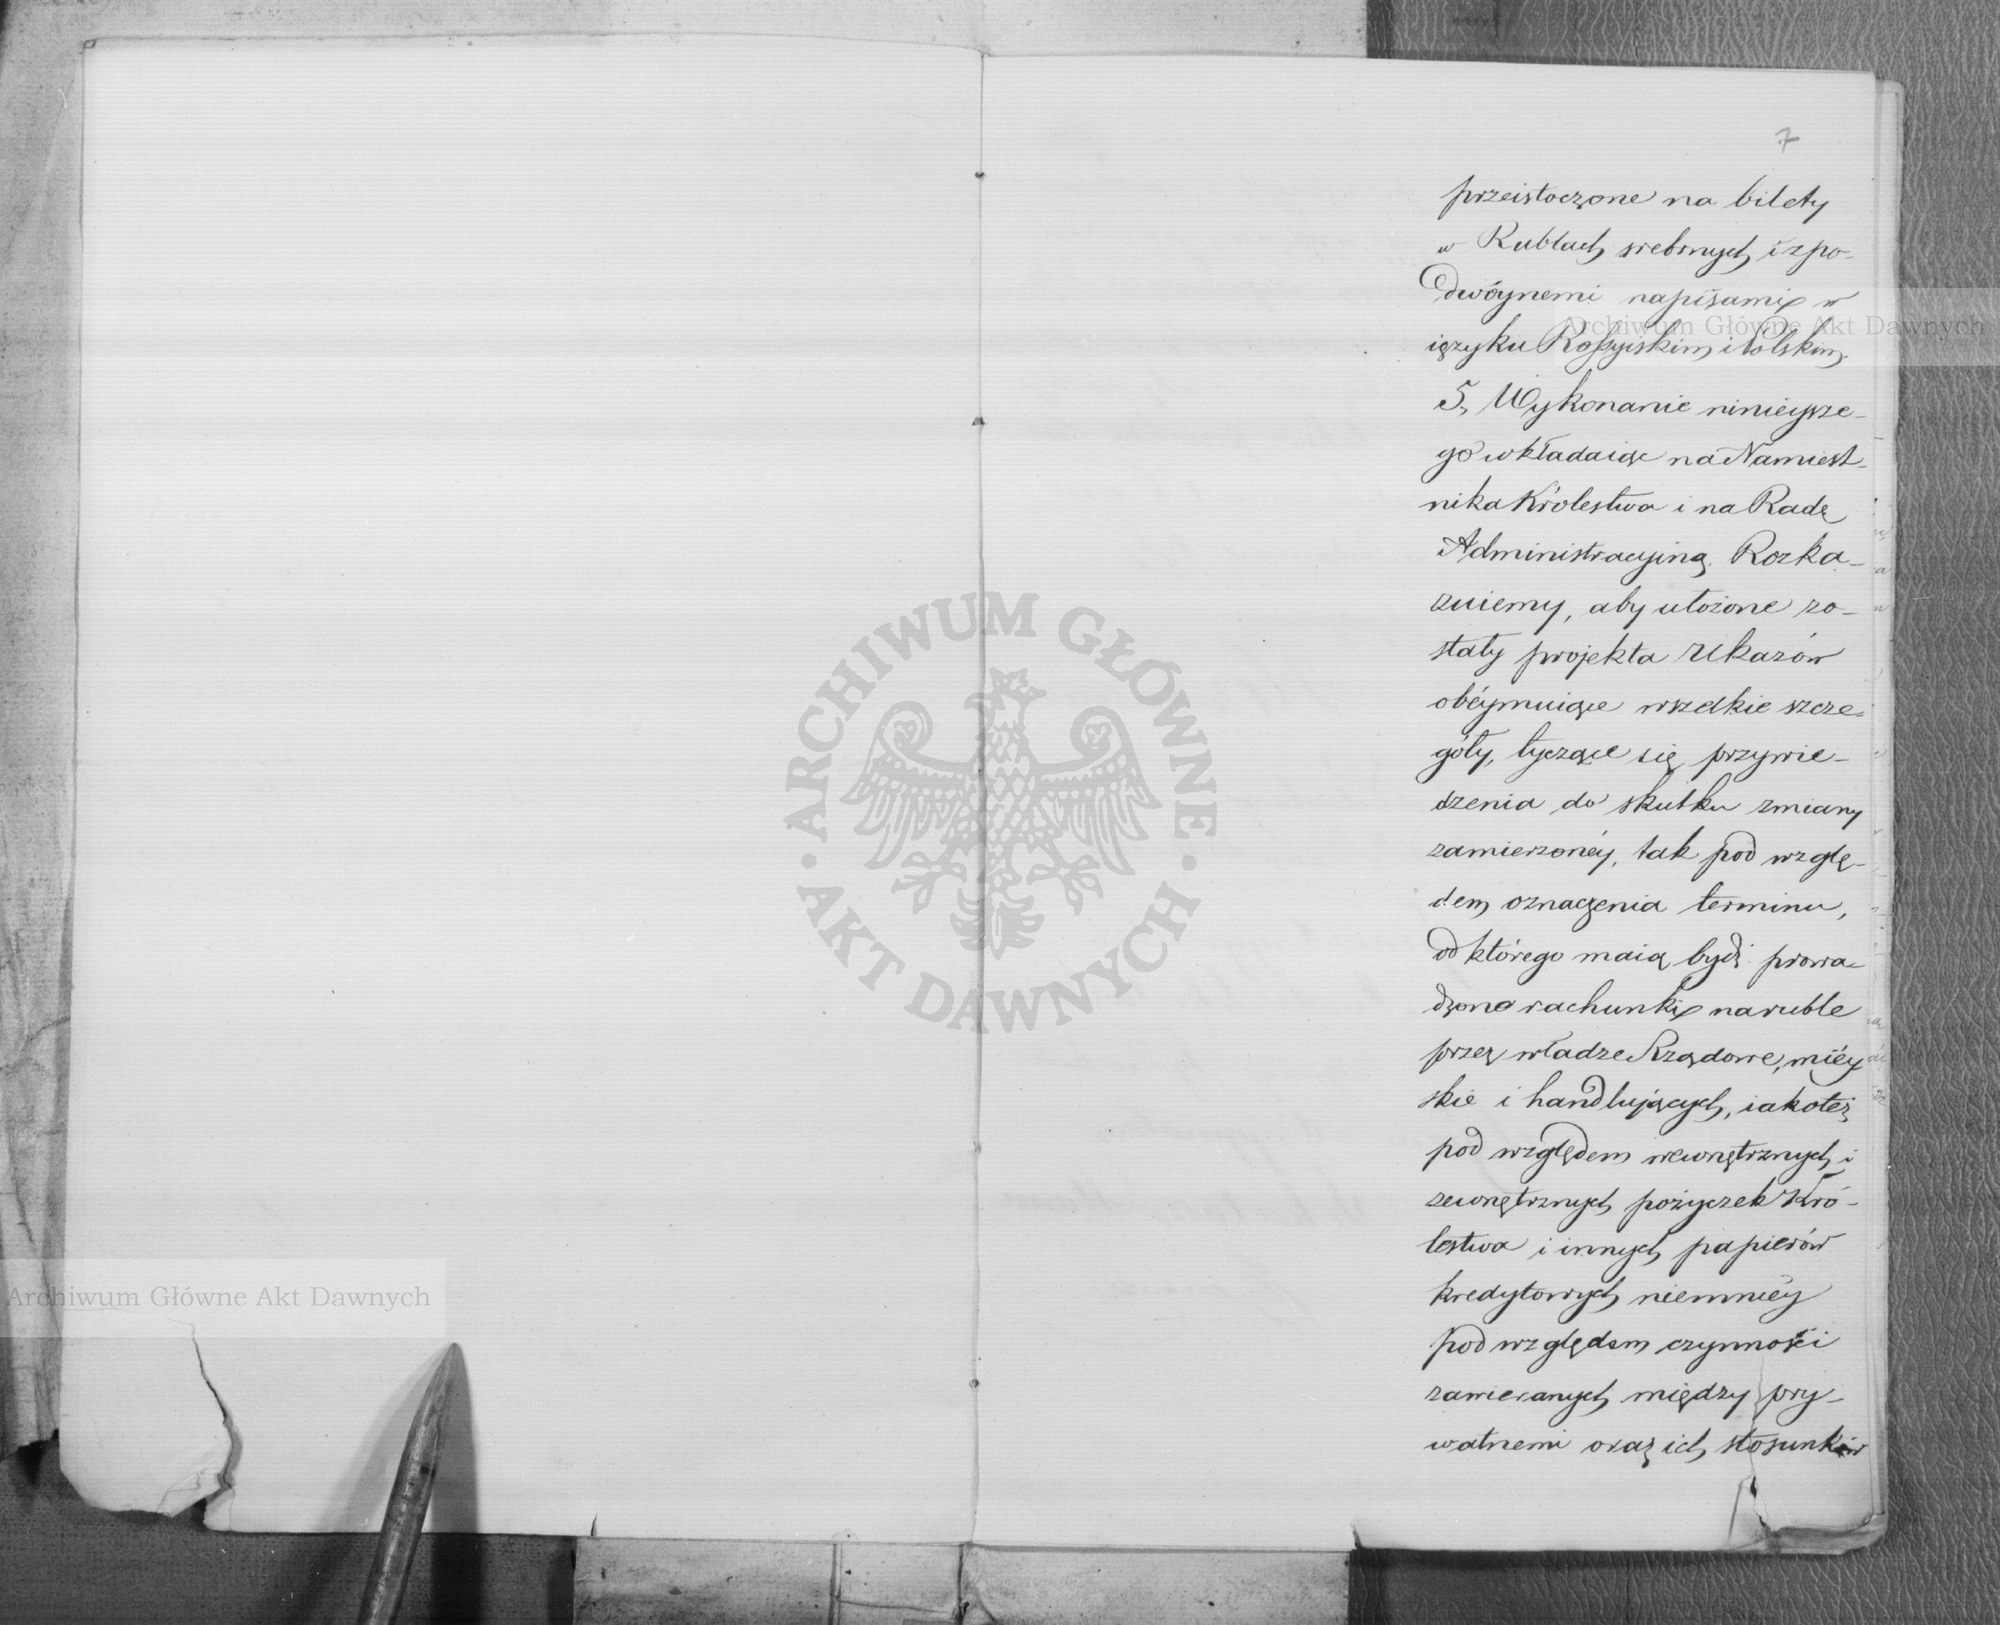 7
przeistoczone na bilety
w Rublach srebrnych i z po-
dwóynemi napisami w
ięzyku Rossyiskim i Polskim.
5, Wykonanie ninieysze-
go wkładaiąc na Namiest-
nika Królestwa i na Radę
Administracyiną. Rozka-
zuiemy, aby ułożone zo-
stały projekta Ukazów
obéymuiące wszelkie szcze-
góły, tyczące się przywie-
dzenia do skutku zmiany
zamierzonéy, tak pod wzglę-
dem oznaczenia terminu,
od którego maią bydź prowa-
dzone rachunki na ruble
przez władze Rządowe, miéy
skie i handlujących, iakoteż
pod względem wewnętrznych i
zewnętrznych pożyczek Kró-
lestwa i innych papierów
kredytowych niemniéy
pod względem czynności
zawieranych między pry-
watnemi oraz ich stosunków
Archiwum Główne Akt Dawnych
ARCHIWUM GŁÓWNE
AKT DAWNYCH
Archiwum Główne Akt Dawnych